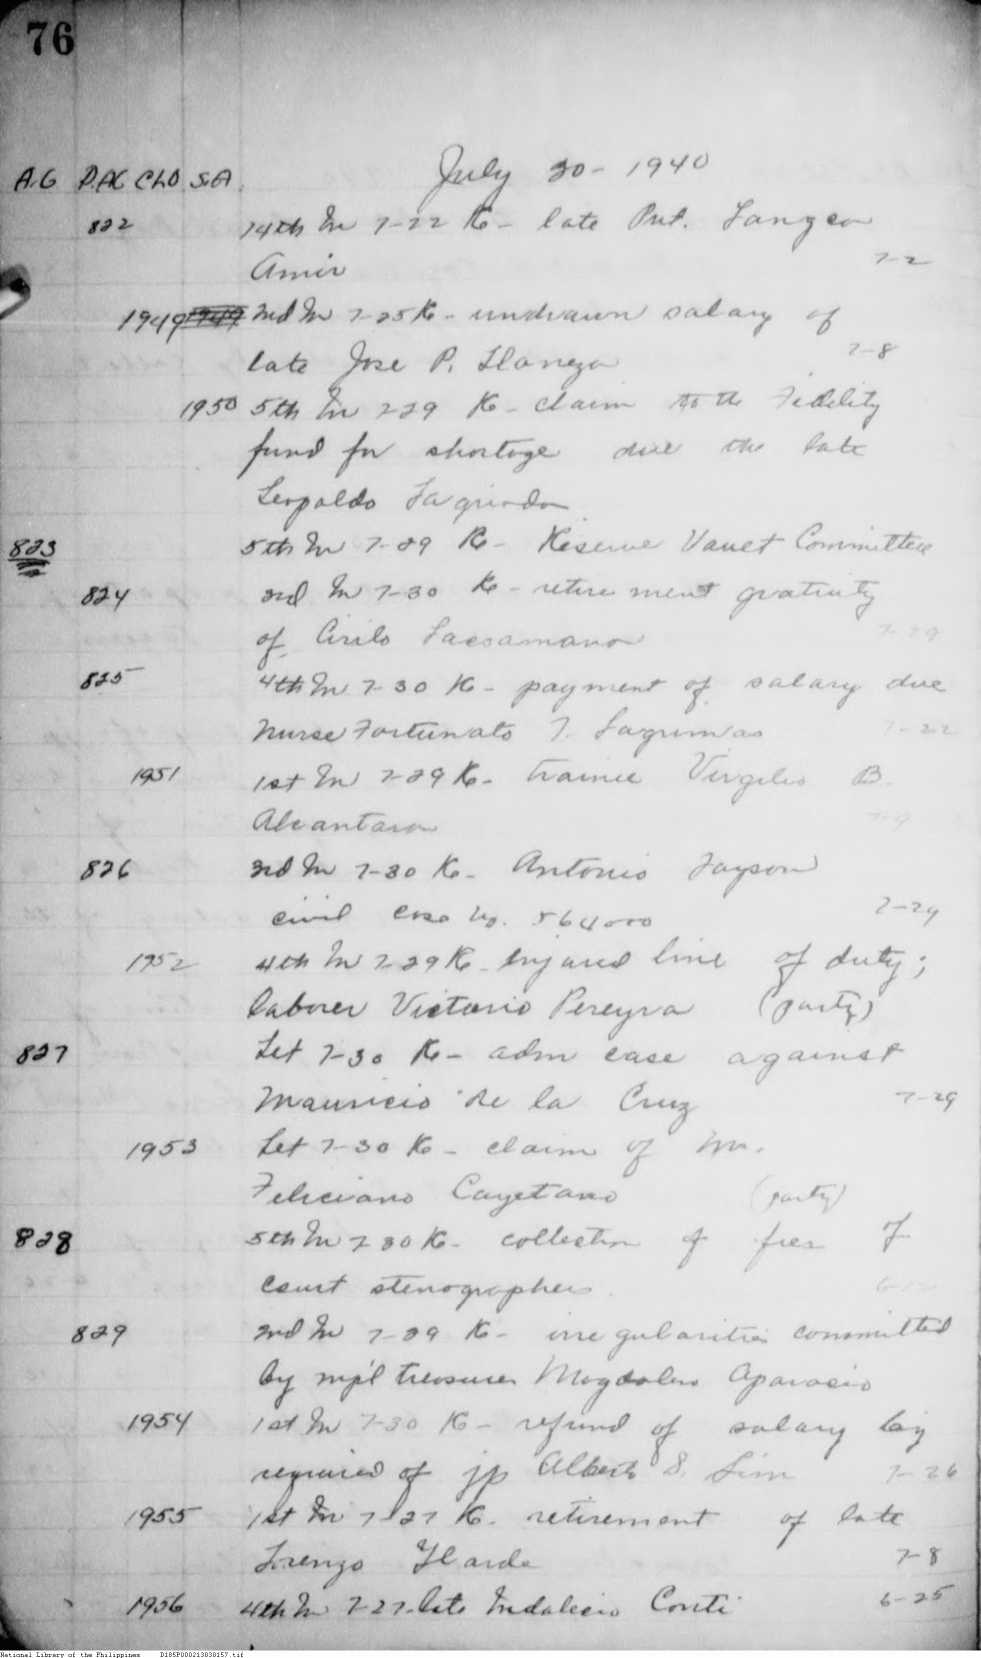 76
July 30- 1940
A.G D.AC CLO S.A.
822 14th In 7-22 K- late Pvt. Langca
Amir 7-2
1949 1949 2nd In 7-25 K- undrawn salary of
late Jose P. Llaneza 7-8
1950 5th In 7-29 K- claim to the Fidelity
fund for shortage due the late
Leopoldo
823 5th In 7-29 K- Reserve Vault Committee
824 3rd In 7-30 K- retirement gratuity
of Cirilo Lacsamana 7-29
825 4th In 7-30 K- payment of salary due
Nurse Fortunato T. Lagrimas 7-22
1951 1st In 7-29 K- trainee Virgilio B.
Alcantara 7-9
826 3rd In 7-30 K- Antonio Tayson
civil case No. 564000 7-29
1952 4th In 7-29 K- injured line of duty;
laborer Victorio Pereyra (party)
827 Let 7-30 K- adm case against
Mauricio de la Cruz 7-29
1953 Let 7-30 K- claim of Mr.
Feliciano Cayetano (party)
828 5th In 7-30 K- collection of fees of
court stenographers
829 2nd In 7-29 K- irregularities committed
by mpl treasurer Magdaleno Aparacio
1954 1st In 7-30 K- refund of salary being
required of jp Alberto S. Lim 7-26
1955 1st In 7-27 K- retirement of late
Lorenzo Ylarde 7-8
1956 4th In 7-27- late Indalecio Conti 6-25
National Library of the Philippines D185P000213038157.tif